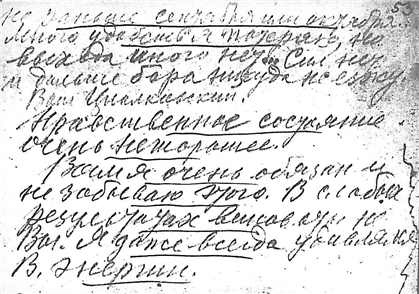 не раньше сентября или октября. 53
Много удобств я потерял, но
выхода иного нет... Сил нет
и дальше бора никуда не езжу.
Ваш Циолковский.
Нравственное состояние
очень нехорошее.
Вам я очень обязан и
не забываю этого. В слабых
результатах виноваты не
Вы. Я даже всегда удивлялся
В. энергии.